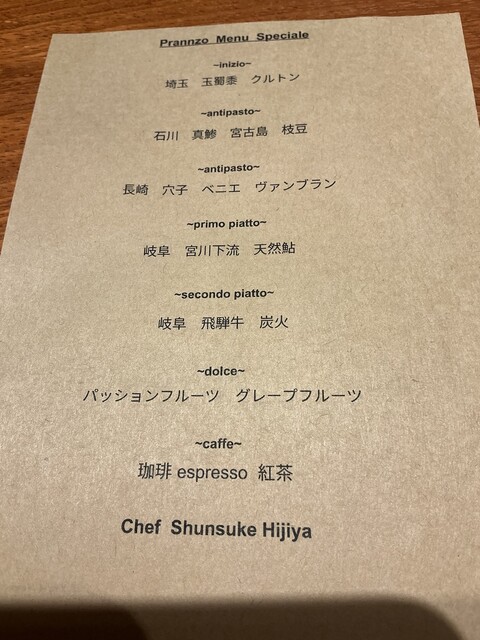 Prannzo Menu Speciale
~inizio~
埼玉 玉蜀黍 クルトン
~antipasto~
石川 真鯵 宮古島 枝豆
~antipasto~
長崎 穴子 ベニエ ヴァンブラン
~primo piatto~
岐阜 宮川下流 天然鮎
~secondo piatto~
岐阜 飛騨牛 炭火
~dolce~
パッションフルーツ グレープフルーツ
~caffe~
珈琲 espresso 紅茶
Chef Shunsuke Hijiya